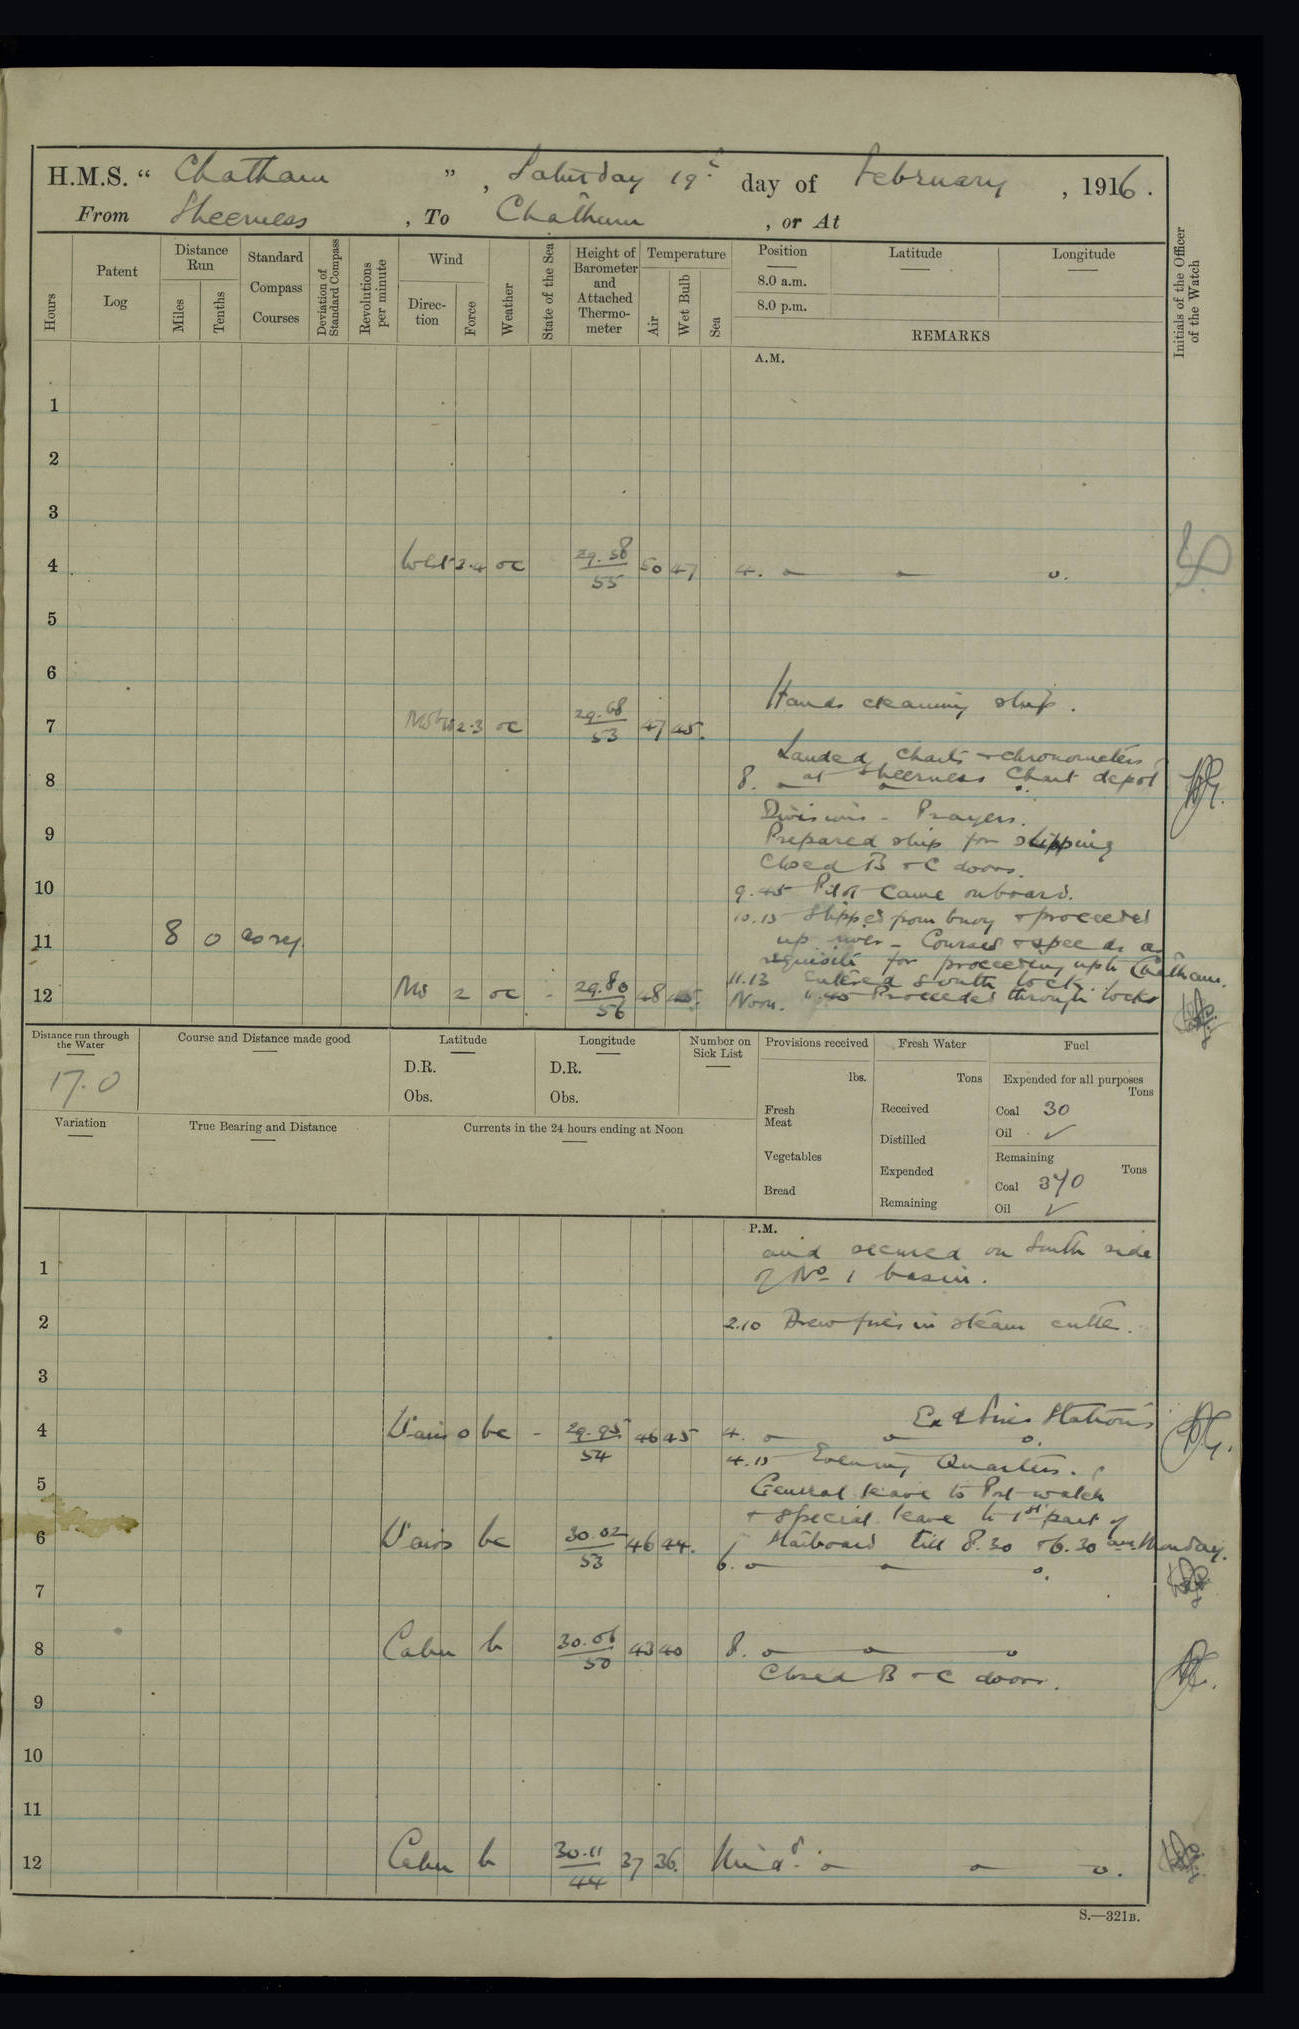 H.M.S. “ Chatham ”, Saturday 19th day of February, 1916.
From Sheerness, To Chatham, or At
Hours
Patent Log
Distance Run
Miles
Tenths
Standard Compass Courses
Deviation of Standard Compass
Revolutions per minute
Wind
Direc-tion
Force
Weather
State of the Sea
Height of Barometer and Attached Thermo-meter
Temperature
Air
Wet Bulb
Sea
Position
8.0 a.m.
8.0 p.m.
Latitude
Longitude
REMARKS
Initials of the Officer of the Watch
A.M.
1
2
3
4 West 3.4 oc 29.58 55 50 47 4. o o o.
5
6
Hands cleaning ship.
7 2.3 oc 29.68 53 47 45.
Landed charts + chronometers
8 8. at Sheerness Chart depot
Divisions - Prayers.
9 Prepared ship for slipping
Closed B + C doors.
10 9.45 Pilot came onboard.
10.15 Slipped from buoy + proceeded
11 8 0 as req. up river - Courses + speeds as
requisite for proceeding up to Chatham.
11.13 Entered South lock.
12 NW 2 oc - 29.80 56 48 45. Noon. 11.40 Proceeded through locks
Distance run through the Water
17.0
Course and Distance made good
Latitude
D.R.
Obs.
Longitude
D.R.
Obs.
Number on Sick List
Provisions received
lbs.
Fresh Meat
Vegetables
Bread
Fresh Water
Tons
Received
Distilled
Expended
Remaining
Fuel
Expended for all purposes
Tons
Coal 30
Oil ✓
Remaining
Tons
Coal 370
Oil ✓
Variation
True Bearing and Distance
Currents in the 24 hours ending at Noon
P.M.
and secured on South side
1 of No 1 basin.
2 2.10 Drew fires in steam cutter.
3
Ex d Fire Stations
4 Vairs 0 bc - 29.95 54 46 45 4. o o o.
4.15 Evening Quarters.
5 General leave to Port watch
+ special leave to 1st part of
6 Vairs bc 30.02 53 46 44. Starboard till 8.30 + 6.30 am Monday.
6. o o o.
7
8 Calm b 30.06 50 43 40 8. o o o
Closed B + C doors.
9
10
11
12 Calm b 30.11 44 37 36. Midt. o o o.
S.—321B.